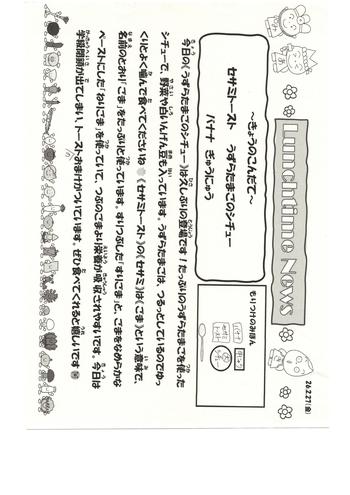 Lunchtime News
26.2.27(金)
～きょうのこんだて～
セサミトースト　うずらたまごのシチュー
バナナ　ぎゅうにゅう
もりつけのみほん
バナナ
今日の《うずらたまごのシチュー》は久しぶりの登場です！たっぷりのうずらたまごを使った
シチューで、野菜や白いんげん豆も入っています。うずらたまごは、つるっとしているのでゆっ
くりとよく噛んで食べてくださいね　《セサミトースト》の《セサミ》は《ごま》という意味で、
名前のとおり「ごま」をたっぷりと使っています。すりつぶした「すりごま」と、ごまをなめらかな
ペーストにした「ねりごま」を使っていて、つぶのごまより栄養が吸収されやすいです。今日は
学級閉鎖が出てしまい、トーストおまけがついています。ぜひ食べてくれると嬉しいです